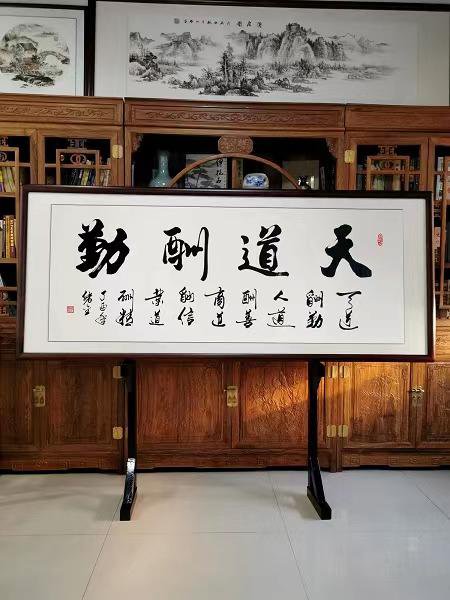 天道酬勤
天道
酬勤
人道
酬善
商道
酬信
業道
酬精
丁酉年